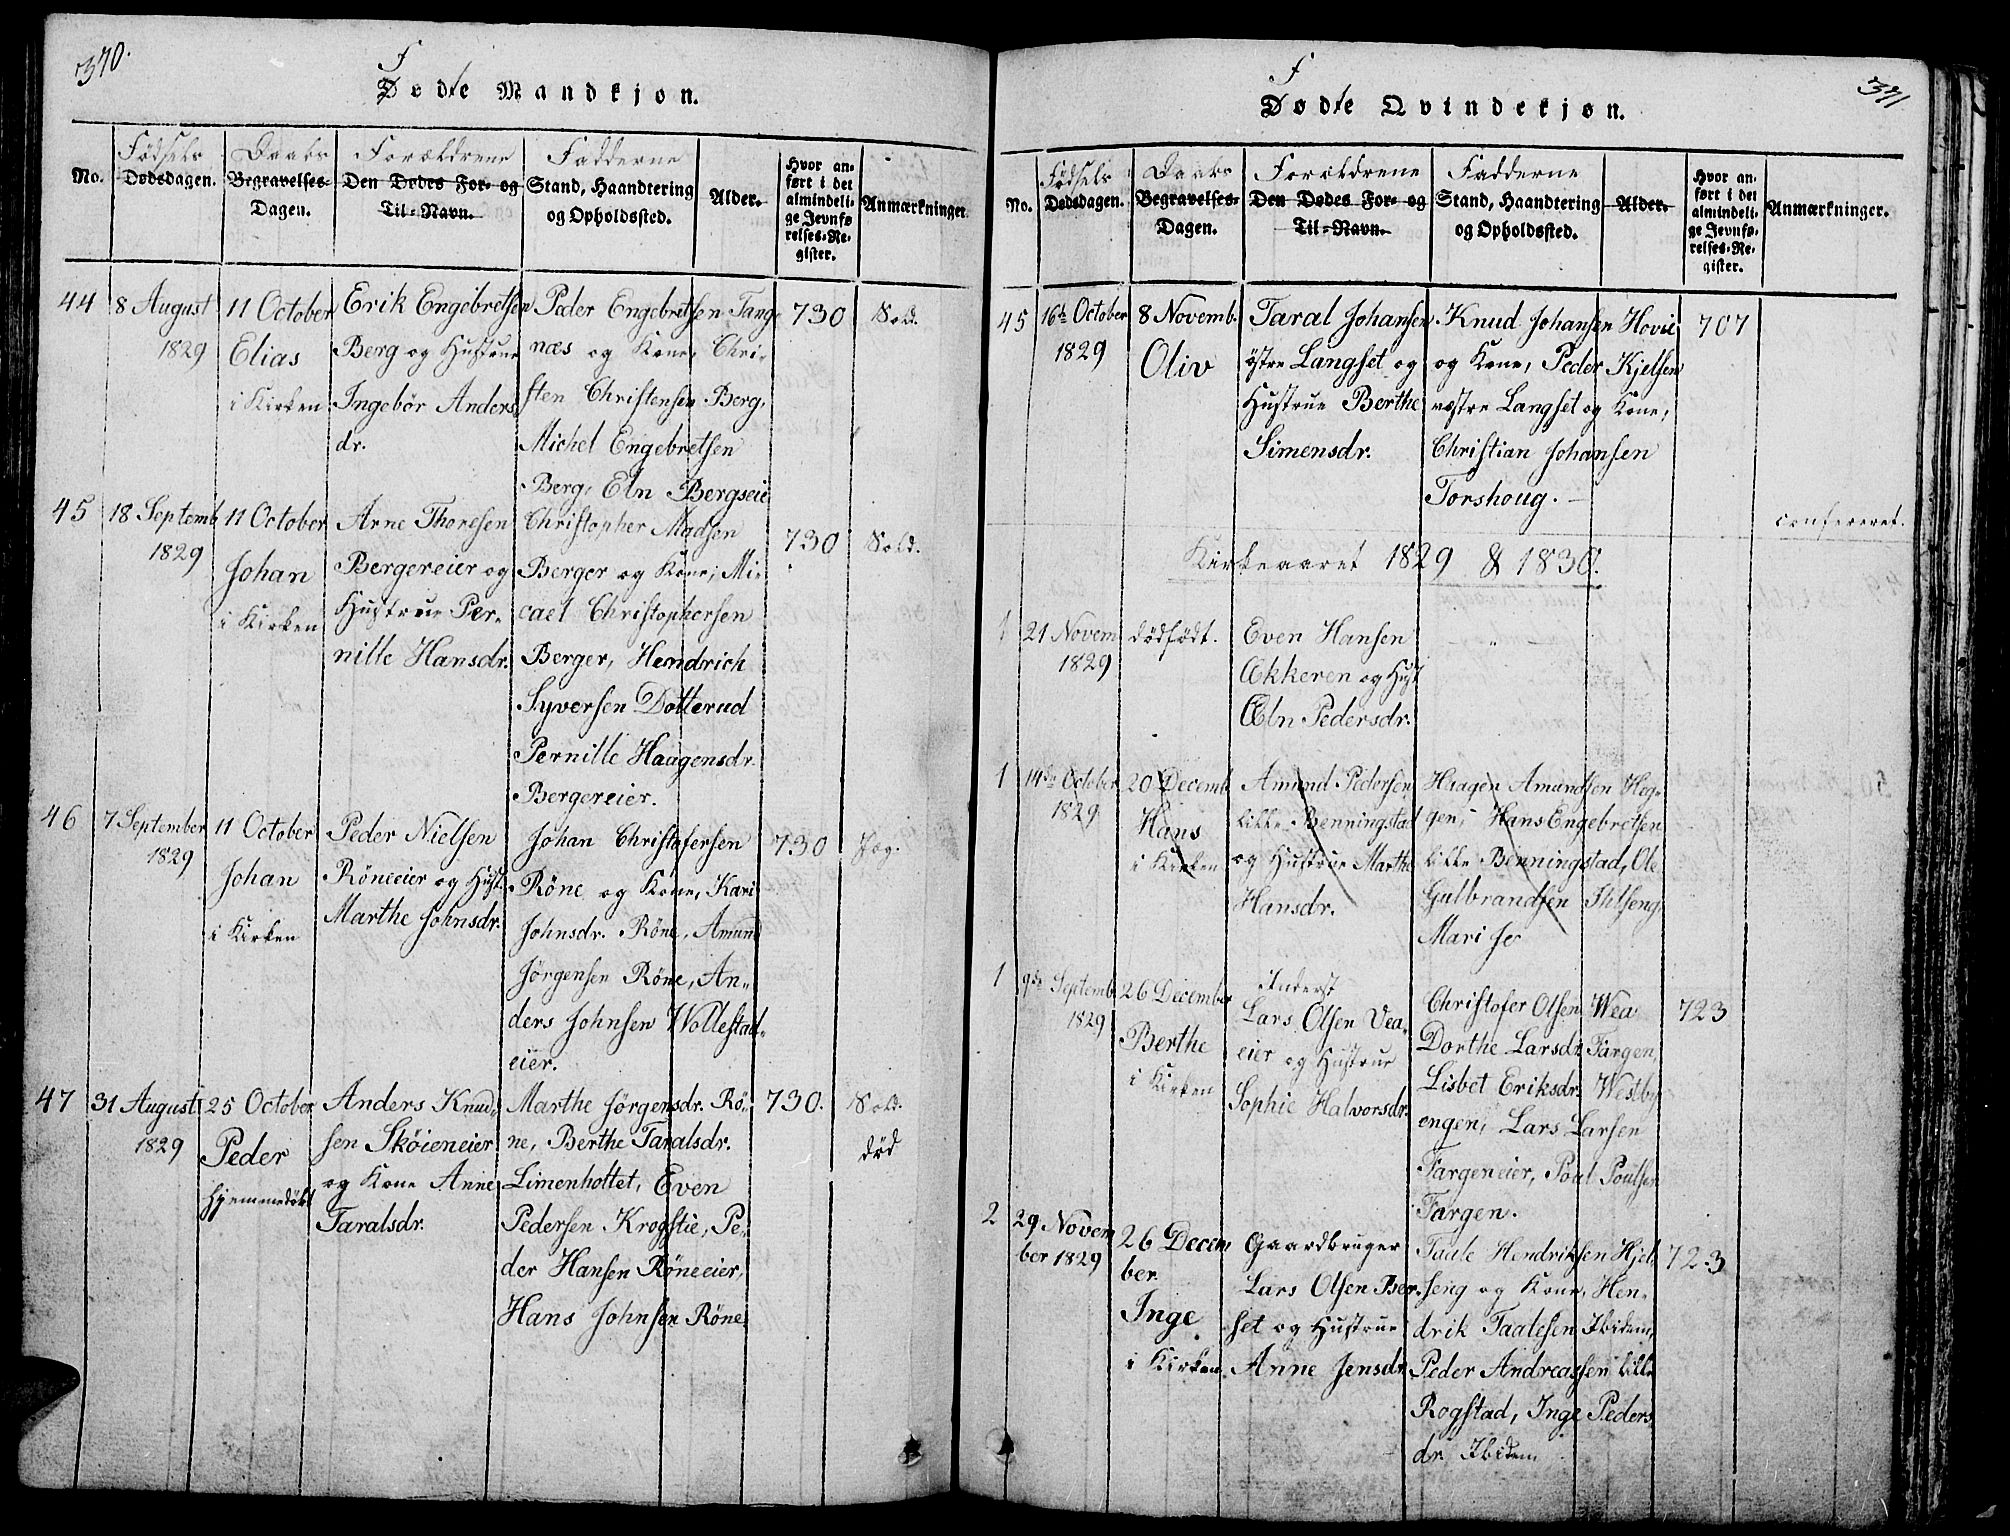 370.
F
Dødte Mandkjøn.
Födsels Daabs Forældrene Fadderne
No. Dødsdagen. Begravelses-Dagen. Den Dødes For- og Til-Navn. Stand, Haandtering og Opholdssted. Alder. Hvor anført i det almindelige Jevnførelses-Register. Anmærkninger.
44 8 August 11 October Erik Engebretsen Peder Engebretsen Tang- 730 Sold.
1829 Elias Berg og Hustrue næs og Kone, Chri-
i Kirken Ingebör Anders sten Christensen Berg,
dr. Michel Engebretsen
Berg, Eln Bergseie
45 18 Septemb 11 October Arne Thoresen Christopher Madsen 730 Sold.
1829 Johan Bergereier og Berger og Kone, Mi-
i Kirken Hustrue Per- cael Christophersen
nille Hansdr. Berger, Hendrich
Syversen Dotterud
Pernille Haagensdr.
Bergereier.
46 7 September 11 October Peder Nielsen Johan Christofersen 730
1829 Johan Röneeier og Hust. Röne og Kone, Kari
i Kirken Marthe Johnsdr. Johnsdr. Röne, Amund
Jörgensen Röne, An-
ders Johnsen Wollestad-
eier.
47 31 August 25 October Anders Knud- Marthe Jörgensdr. Rö- 730. Sold.
1829 Peder sen Sköieneier ne, Berthe Taralsdr. död
Hjemmedöbt og Kone Anne Limenhottet, Even
Taralsdr. Pedersen Krogstie, Pe-
der Hansen Röneeier,
Hans Johnsen Röne
371
F
Dødte Qvindekjøn.
Födsels Daabs Forældrene Fadderne
No. Dødsdagen. Begravelses-Dagen. Den Dødes For- og Til-Navn. Stand, Haandtering og Opholdssted. Alder. Hvor anført i det almindelige Jevnførelses-Register. Anmærkninger.
45 16de October 8 Novemb. Taral Johansen Knud Johansen Hovie 707
1829 Oliv östre Langset og og Kone, Peder Kjelsen
Hustrue Berthe vestre Langset og Kone,
Simensdr. Christian Johansen
Torshoug. —
confereret.
Kirkeaaret 1829 & 1830.
1 21 Novem dödfödt. Even Hansen — " —
1829 Akkeren og Hust
Æln Pedersdr.
1 14de October 20 Decemb. Amund Pedersen Haagen Amundsen Hog-
1829 Hans lille Benningstad gen, Hans Engebretsen
i Kirken og Hustrue Marthe lille Benningstad, Ole
Hansdr. Gulbrandsen Ihlseng
Mari Jo
1 9de Septemb. 26 December Inderst Christofer Olsen Wea 723
1829 Berthe Lars Olsen Vea- Dorthe Larsdr. Fargen,
i Kirken eier og Hustrue Lisbet Eriksdr. Westby
Sophie Halvorsdr. engen, Lars Larsen
Fargeneier, Poul Poulsen
Fargen.
2 29 Novem 26 Decem Gaardbruger Taale Hendriksen Hjel- 723
ber 1829 ber. Lars Olsen Ber- seng og Kone, Hen-
Inge set og Hustrue drik Taalesen Ibidem,
i Kirken. Anne Jensdr. Peder Andreassen lille
Rogstad, Inge Peders
dr. Ibidem